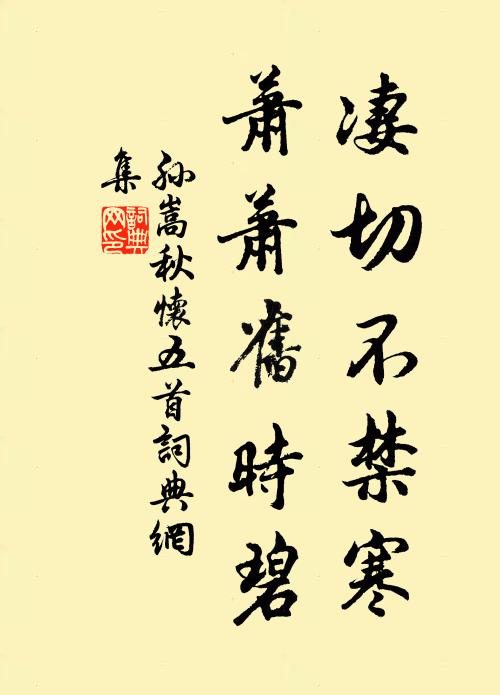 凄切不禁寒
萧萧舊時碧
孙嵩秋懷五首詞典網
集
詞典网印